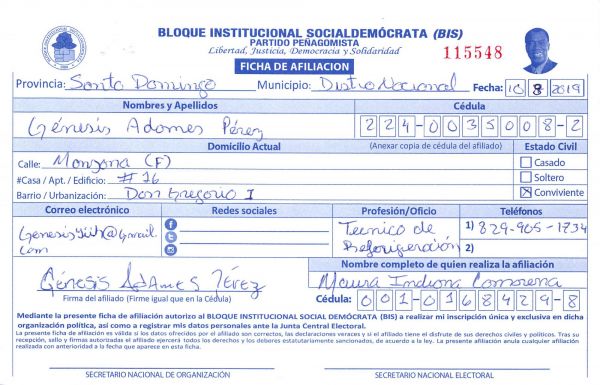 BLOQUE INSTITUCIONAL SOCIALDEMÓCRATA (BIS)
PARTIDO PEÑAGOMISTA
Libertad, Justicia, Democracia y Solidaridad
115548
FICHA DE AFILIACION
Provincia: Santo Domingo Municipio: Distrito Nacional Fecha: 10 8 2019
Nombres y Apellidos Cédula
Génesis Adames Pérez 224-0035008-2
Domicilio Actual (Anexar copia de cédula del afiliado) Estado Civil
Calle: Manzana (F) Casado
#Casa / Apt. / Edificio: # 16 Soltero
Barrio / Urbanización: Don Gregorio I Conviviente
Correo electrónico Redes sociales Profesión/Oficio Teléfonos
Genesis @gmail Tecnico de 1) 829-905-1734
com Refrigeración 2)
Génesis Adames Pérez
Firma del afiliado (Firme igual que en la Cédula)
Nombre completo de quien realiza la afiliación
Maura Indiana
Cédula: 001-0168429-8
Mediante la presente ficha de afiliación autorizo al BLOQUE INSTITUCIONAL SOCIAL DEMÓCRATA (BIS) a realizar mi inscripción única y exclusiva en dicha
organización política, así como a registrar mis datos personales ante la Junta Central Electoral.
La presente ficha de afiliación es válida si los datos ofrecidos por el afiliado son correctos, las declaraciones veraces y si el afiliado tiene el disfrute de sus derechos civiles y políticos. Tras su
recepción, sallo y firmas autorizadas el afiliado ejercerá todos los derechos y los deberes estatutariamente sancionados, de acuerdo a la ley. La presente afiliación anula cualquier afiliación
realizada con anterioridad a la fecha que aparece en esta ficha.
SECRETARIO NACIONAL DE ORGANIZACIÓN SECRETARIO NACIONAL ELECTORAL